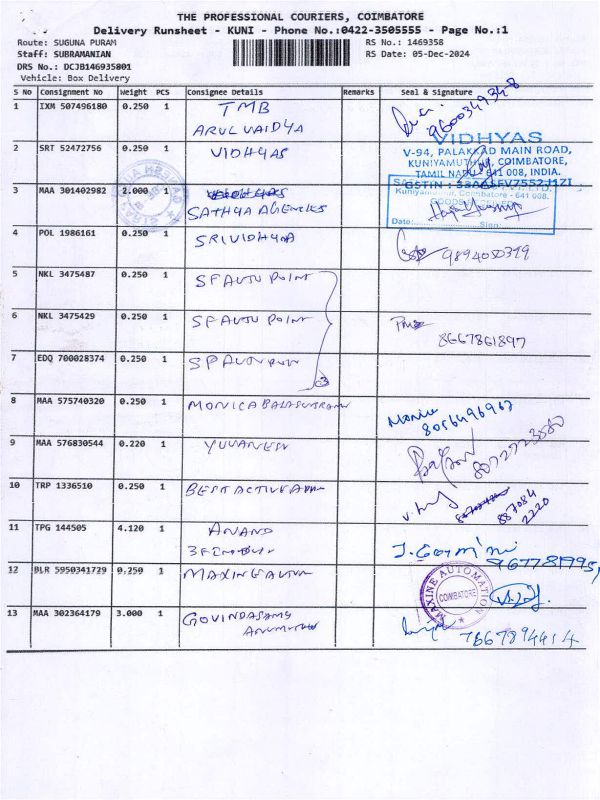 THE PROFESSIONAL COURIERS, COIMBATORE
Delivery Runsheet - KUNI - Phone No.:0422-3505555 - Page No.:1
Route: SUGUNA PURAM RS No.: 1469358
Staff: SUBRAMANIAN RS Date: 05-Dec-2024
DRS No.: DCJB146935801
Vehicle: Box Delivery
S No Consignment No Weight PCS Consignee Details Remarks Seal & Signature
1 IXM 507496180 0.250 1 TMB
ARUL VAIDYA
9600349348
2 SRT 52472756 0.250 1 VIDHYAS
VIDHYAS
V-94, PALAKKAD MAIN ROAD,
KUNIYAMUTHUR, COIMBATORE,
TAMIL NADU - 641 008, INDIA.
3 MAA 301402982 2.000 1
SATHYA AGENCIES
GSTIN :
Coimbatore - 641 008.
Date: Sign:
4 POL 1986161 0.250 1 SRIVIDHYA
9894050399
5 NKL 3475487 0.250 1 SF AUTO POINT
6 NKL 3475429 0.250 1 SF AUTO POINT
8667861897
7 EDQ 700028374 0.250 1
8 MAA 575740320 0.250 1 MONICA
Monica
8056496967
9 MAA 576830544 0.220 1 YUVANESH
10 TRP 1336510 0.250 1 BEST ACTIVE
887084
2220
11 TPG 144505 4.120 1 ANAND
J. Gomini
12 BLR 5950341729 0.250 1 MAXINE
MAXINE AUTOMATION
COIMBATORE
13 MAA 302364179 3.000 1 GOVINDASAMY
7667894414